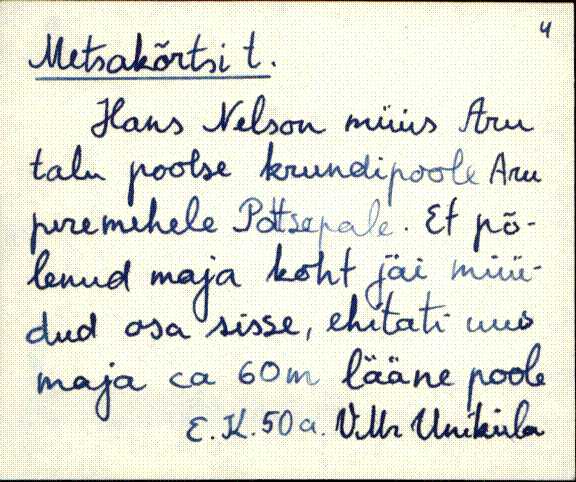 4
Metsakõrtsi t.
Hans Nelson müüs Aru
talu pootse krundipoole Aru
peremehele Pottsepale. Et põ-
lenud maja koht jäi müü-
dud osa sisse, ehitati uus
maja ca 60 m lääne poole
E. K. 50 a. V.Mr Uniküla